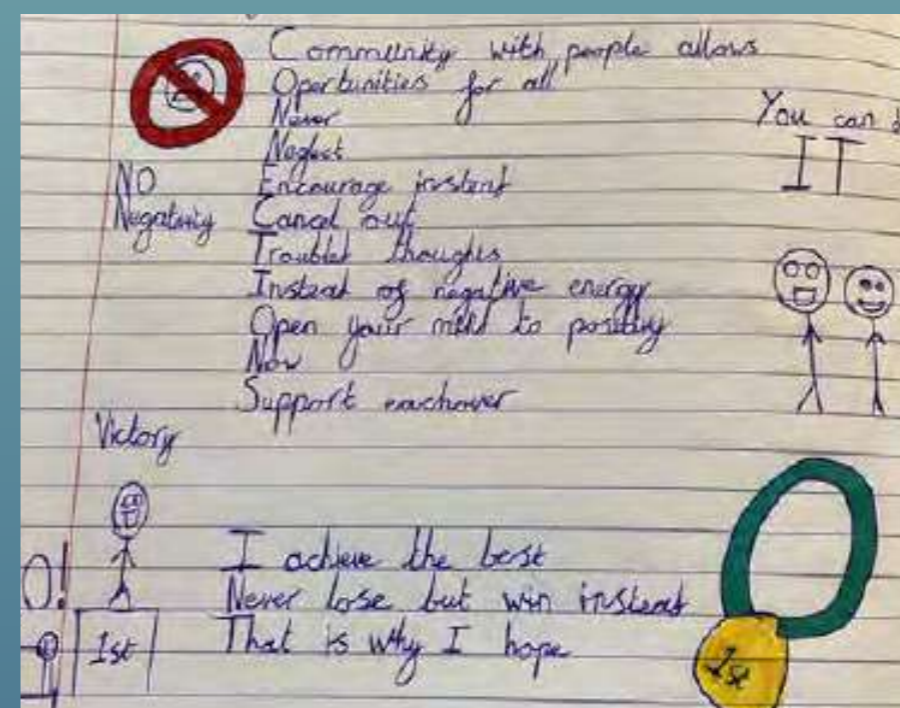 Community with people allows
Oportunities for all
Never
Neglect
Encourage instent
Cancel out
Troublet thoughts
Instead of negative energy
Open your mind to positivy
Now
Support eachover
NO
Negativity
You can
IT
Victory
O!
1st
I achieve the best
Never lose but win insteat
That is why I hope
1st